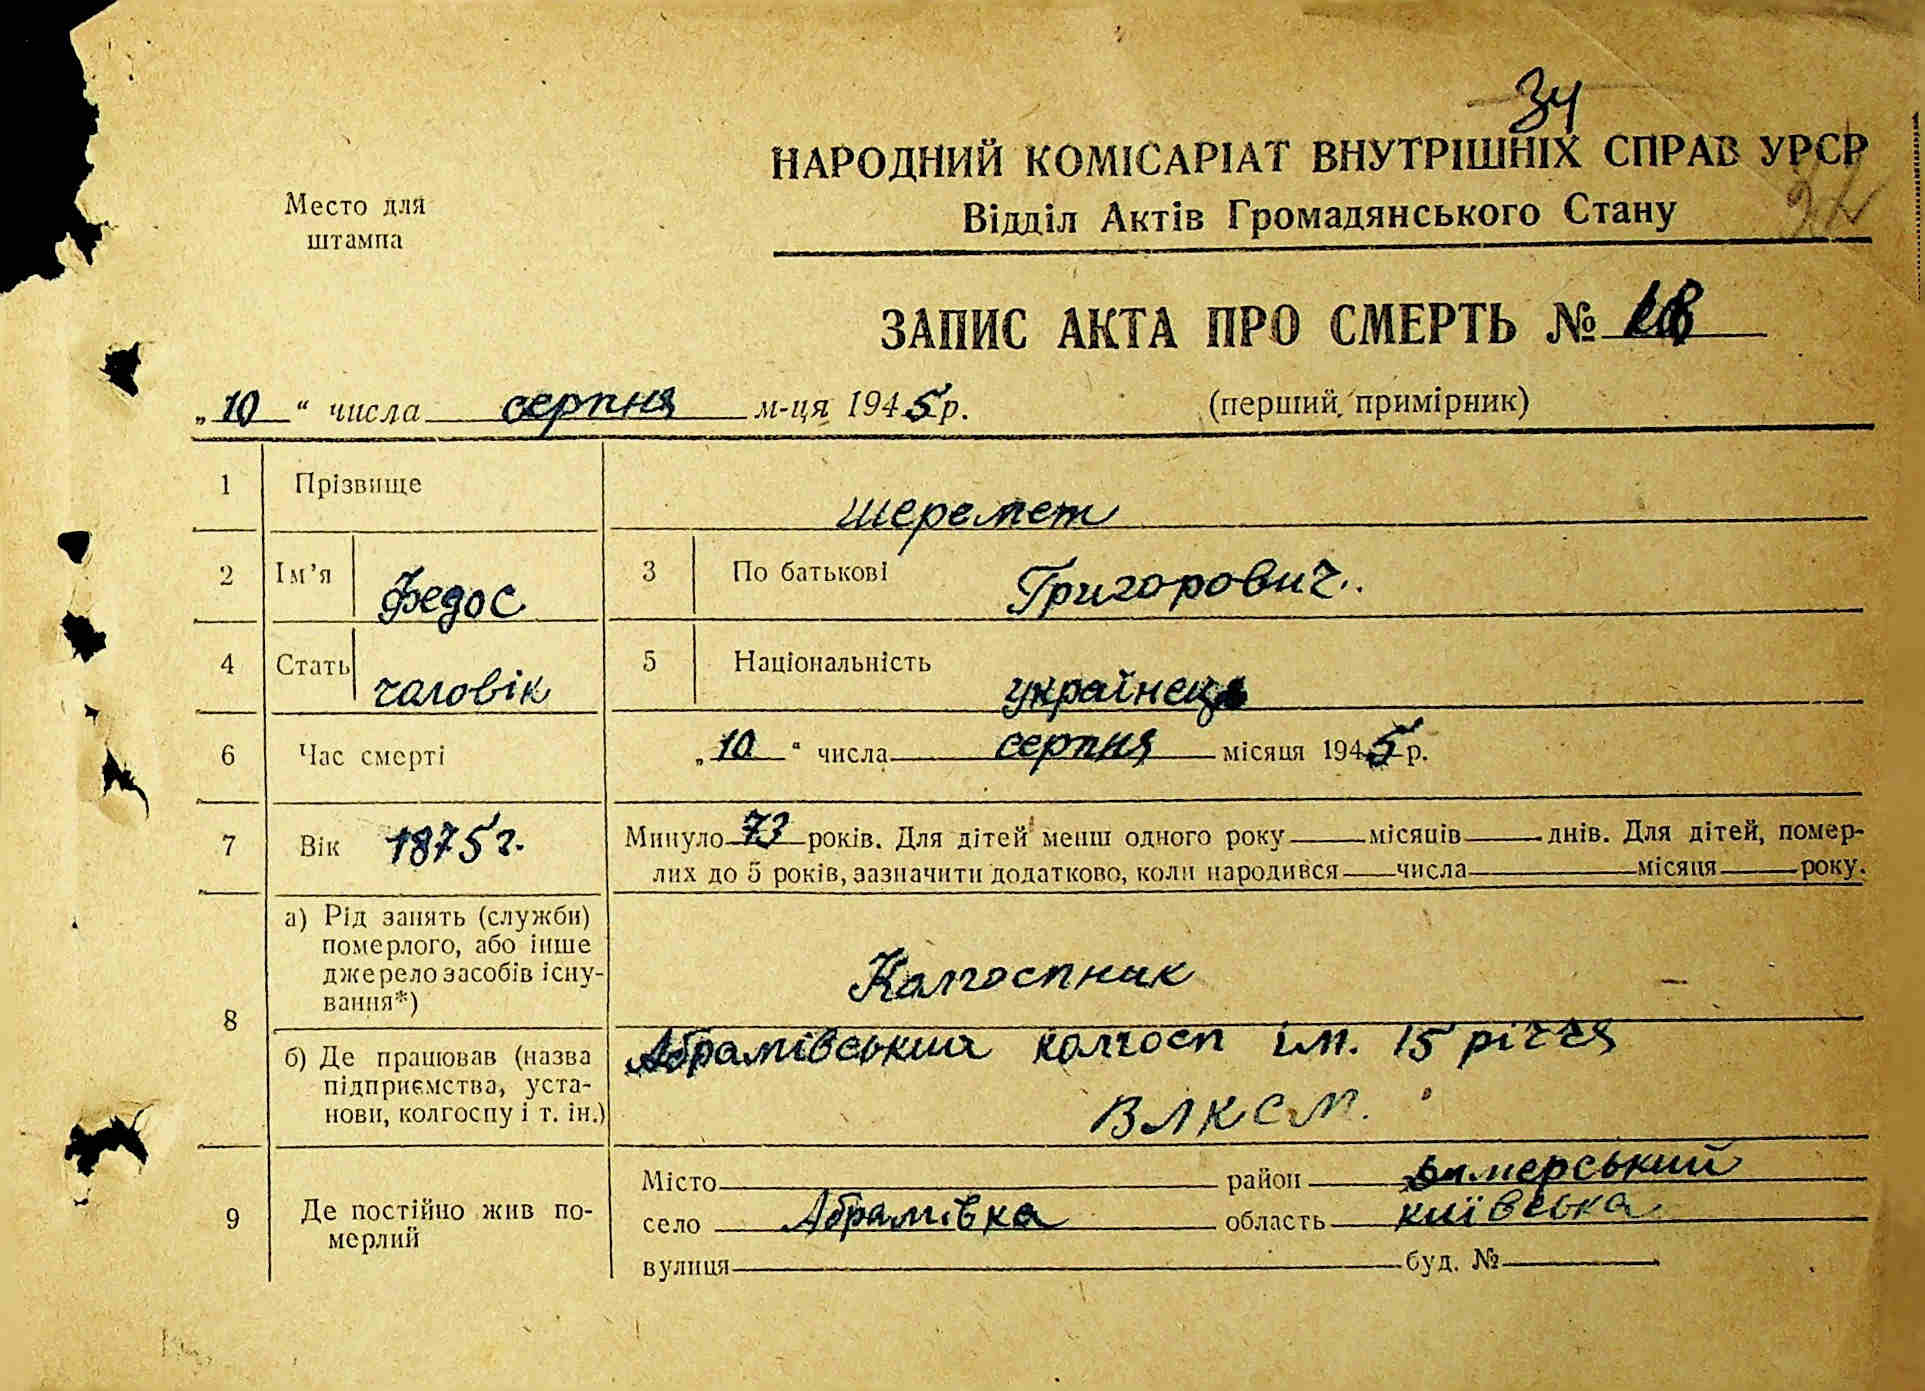 34
НАРОДНИЙ КОМІСАРІАТ ВНУТРІШНІХ СПРАВ УРСР
Место для штампа
Відділ Актів Громадянського Стану
ЗАПИС АКТА ПРО СМЕРТЬ №
„10“ числа серпня м-ця 1945 р. (перший примірник)
1 Прізвище Шеремет
2 Ім’я Федос 3 По батькові Григорович.
4 Стать чоловік 5 Національність українець
6 Час смерті „10“ числа серпня місяця 1945 р.
7 Вік 1875 г. Минуло 73 років. Для дітей менш одного року місяців днів. Для дітей, помер-
лих до 5 років, зазначити додатково, коли народився числа місяця року.
8 а) Рід занять (служби)
померлого, або інше
джерело засобів існу-
вання*)
Колгоспник
б) Де працював (назва
підприємства, уста-
нови, колгоспу і т. ін.)
Абрамівський колгосп ім. 15 річчя
ВЛКСМ.
9 Де постійно жив по-
мерлий
Місто район Димерський
село Абрамівка область київська
вулиця буд. №